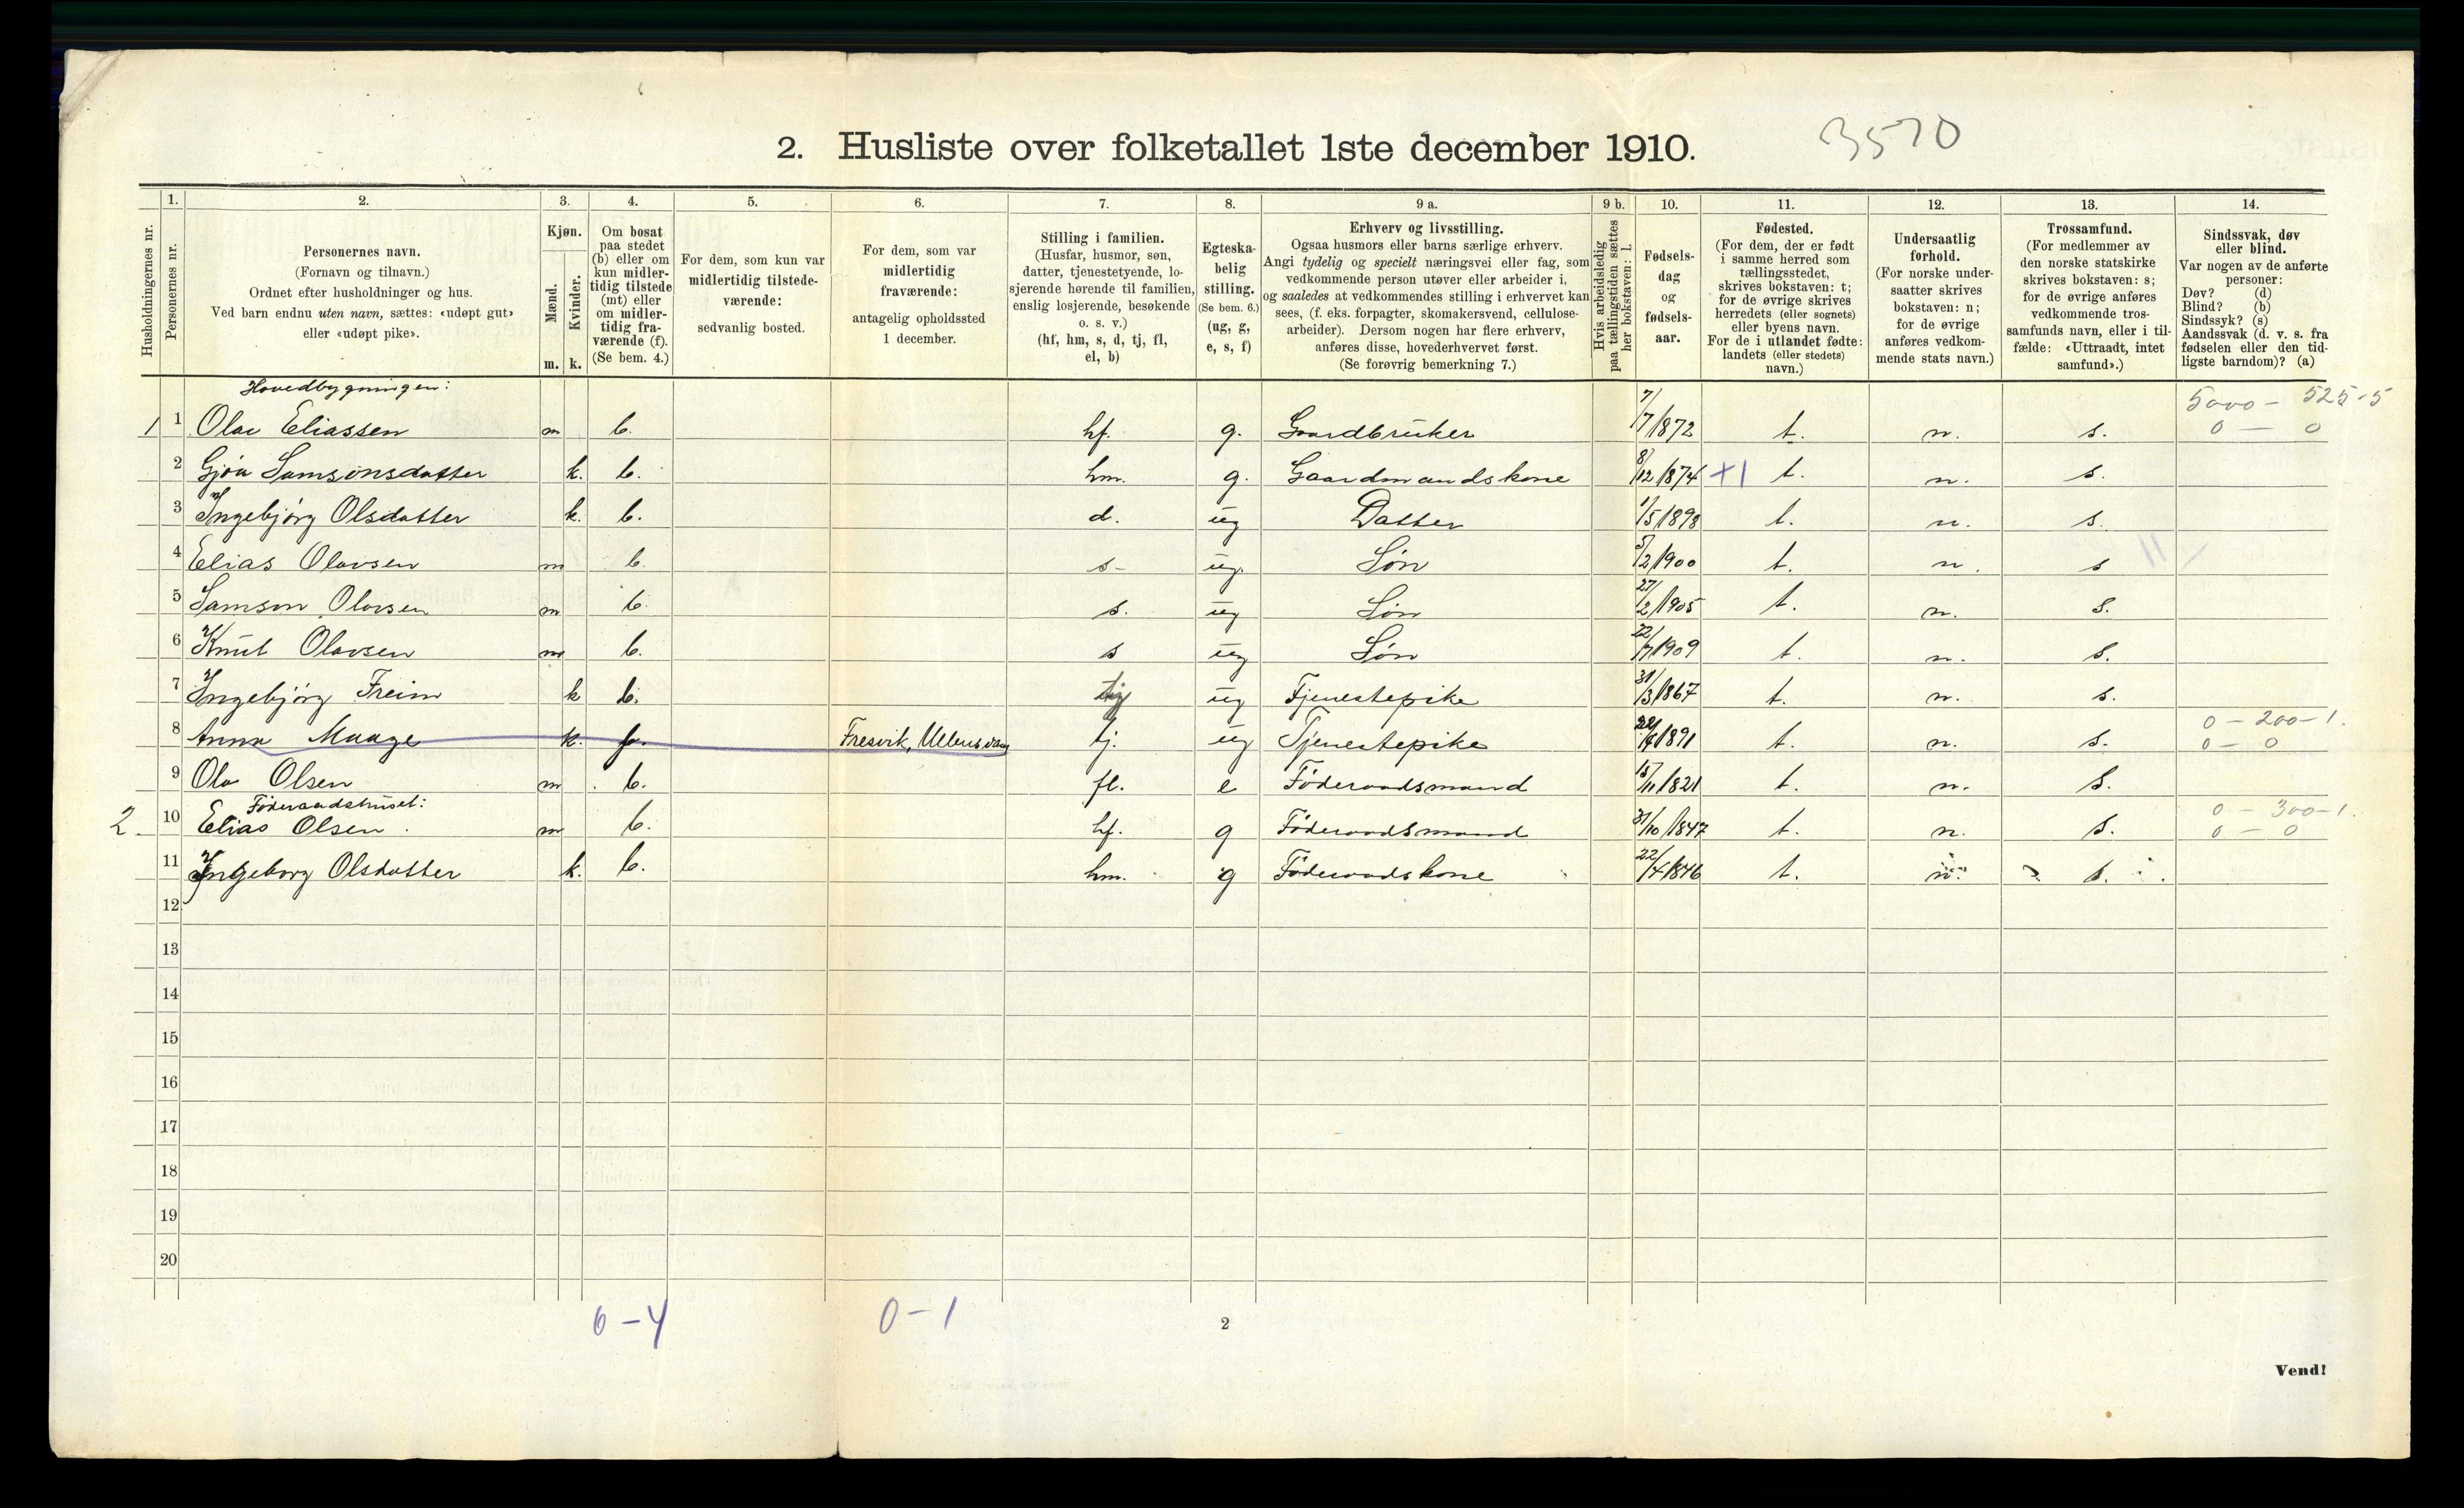 2. Husliste over folketallet 1ste december 1910.
3570
Husholdningernes nr.
1.
Personernes nr.
2.
Personernes navn.
(Fornavn og tilnavn.)
Ordnet efter husholdninger og hus.
Ved barn endnu uten navn, sættes: «udøpt gut»
eller «udøpt pike».
3.
Kjøn.
Mænd.
Kvinder.
m. k.
4.
Om bosat
paa stedet
(b) eller om
kun midler-
tidig tilstede
(mt) eller
om midler-
tidig fra-
værende (f).
(Se bem. 4.)
5.
For dem, som kun var
midlertidig tilstede-
værende:
sedvanlig bosted.
6.
For dem, som var
midlertidig
fraværende:
antagelig opholdssted
1 december.
7.
Stilling i familien.
(Husfar, husmor, søn,
datter, tjenestetyende, lo-
sjerende hørende til familien,
enslig losjerende, besøkende
o. s. v.)
(hf, hm, s, d, tj, fl,
el, b)
8.
Egteska-
belig
stilling.
(Se bem. 6.)
(ug, g,
e, s, f)
9 a.
Erhverv og livsstilling.
Ogsaa husmors eller barns særlige erhverv.
Angi tydelig og specielt næringsvei eller fag, som
vedkommende person utøver eller arbeider i,
og saaledes at vedkommendes stilling i erhvervet kan
sees, (f. eks. forpagter, skomakersvend, cellulose-
arbeider). Dersom nogen har flere erhverv,
anføres disse, hovederhvervet først.
(Se forøvrig bemerkning 7.)
9 b.
Hvis arbeidsledig
paa tællingstiden sættes
her bokstaven: l.
10.
Fødsels-
dag
og
fødsels-
aar.
11.
Fødested.
(For dem, der er født
i samme herred som
tællingsstedet,
skrives bokstaven: t;
for de øvrige skrives
herredets (eller sognets)
eller byens navn.
For de i utlandet fødte:
landets (eller stedets)
navn.)
12.
Undersaatlig
forhold.
(For norske under-
saatter skrives
bokstaven: n;
for de øvrige
anføres vedkom-
mende stats navn.)
13.
Trossamfund.
(For medlemmer av
den norske statskirke
skrives bokstaven: s;
for de øvrige anføres
vedkommende tros-
samfunds navn, eller i til-
fælde: «Uttraadt, intet
samfund».)
14.
Sindssvak, døv
eller blind.
Var nogen av de anførte
personer:
Døv? (d)
Blind? (b)
Sindssyk? (s)
Aandssvak (d. v. s. fra
fødselen eller den tid-
ligste barndom)? (a)
Hovedbygningen:
5000 - 525-5
1 1 Olav Eliassen m b. hf. g. Gaardbruker 7/7 1872 t. n. s. 0 - 0
2 Gjøa Samsonsdatter k. b. hm. g. Gaardmandskone 8/12 1874 +1 t. n. s.
3 Ingebjørg Olsdatter k. b. d. ug Datter 1/5 1898 t. n. s.
4 Elias Olavsen m b. s- ug. Søn 5/2 1900 t. n. s
5 Samson Olavsen m b. s. ug Søn 27/2 1905 t. n. s.
6 Knut Olavsen m b. s ug Søn 22/7 1909 t. n. s.
7 Ingebjørg Freim k b. tj ug Tjenestepike 31/3 1867 t. n. s.
0 - 200-1.
8 Anna Maage k. f. Fresvik, Ullensvang tj. ug Tjenestepike 22/4 1891 t. n. s. 0 - 0
9 Ola Olsen m b. fl. e Føderaadsmand 15/11 1821 t. n. s.
Føderaadshuset:
0 - 300-1.
2. 10 Elias Olsen m b. hf. g Føderaadsmand 31/10 1847 t. n. s. 0 - 0
11 Ingeborg Olsdatter k. b. hm. g Føderaadskone 22/4 1846 t. n. s.
12
13
14
15
16
17
18
19
20
6-4
0-1
2
Vend!